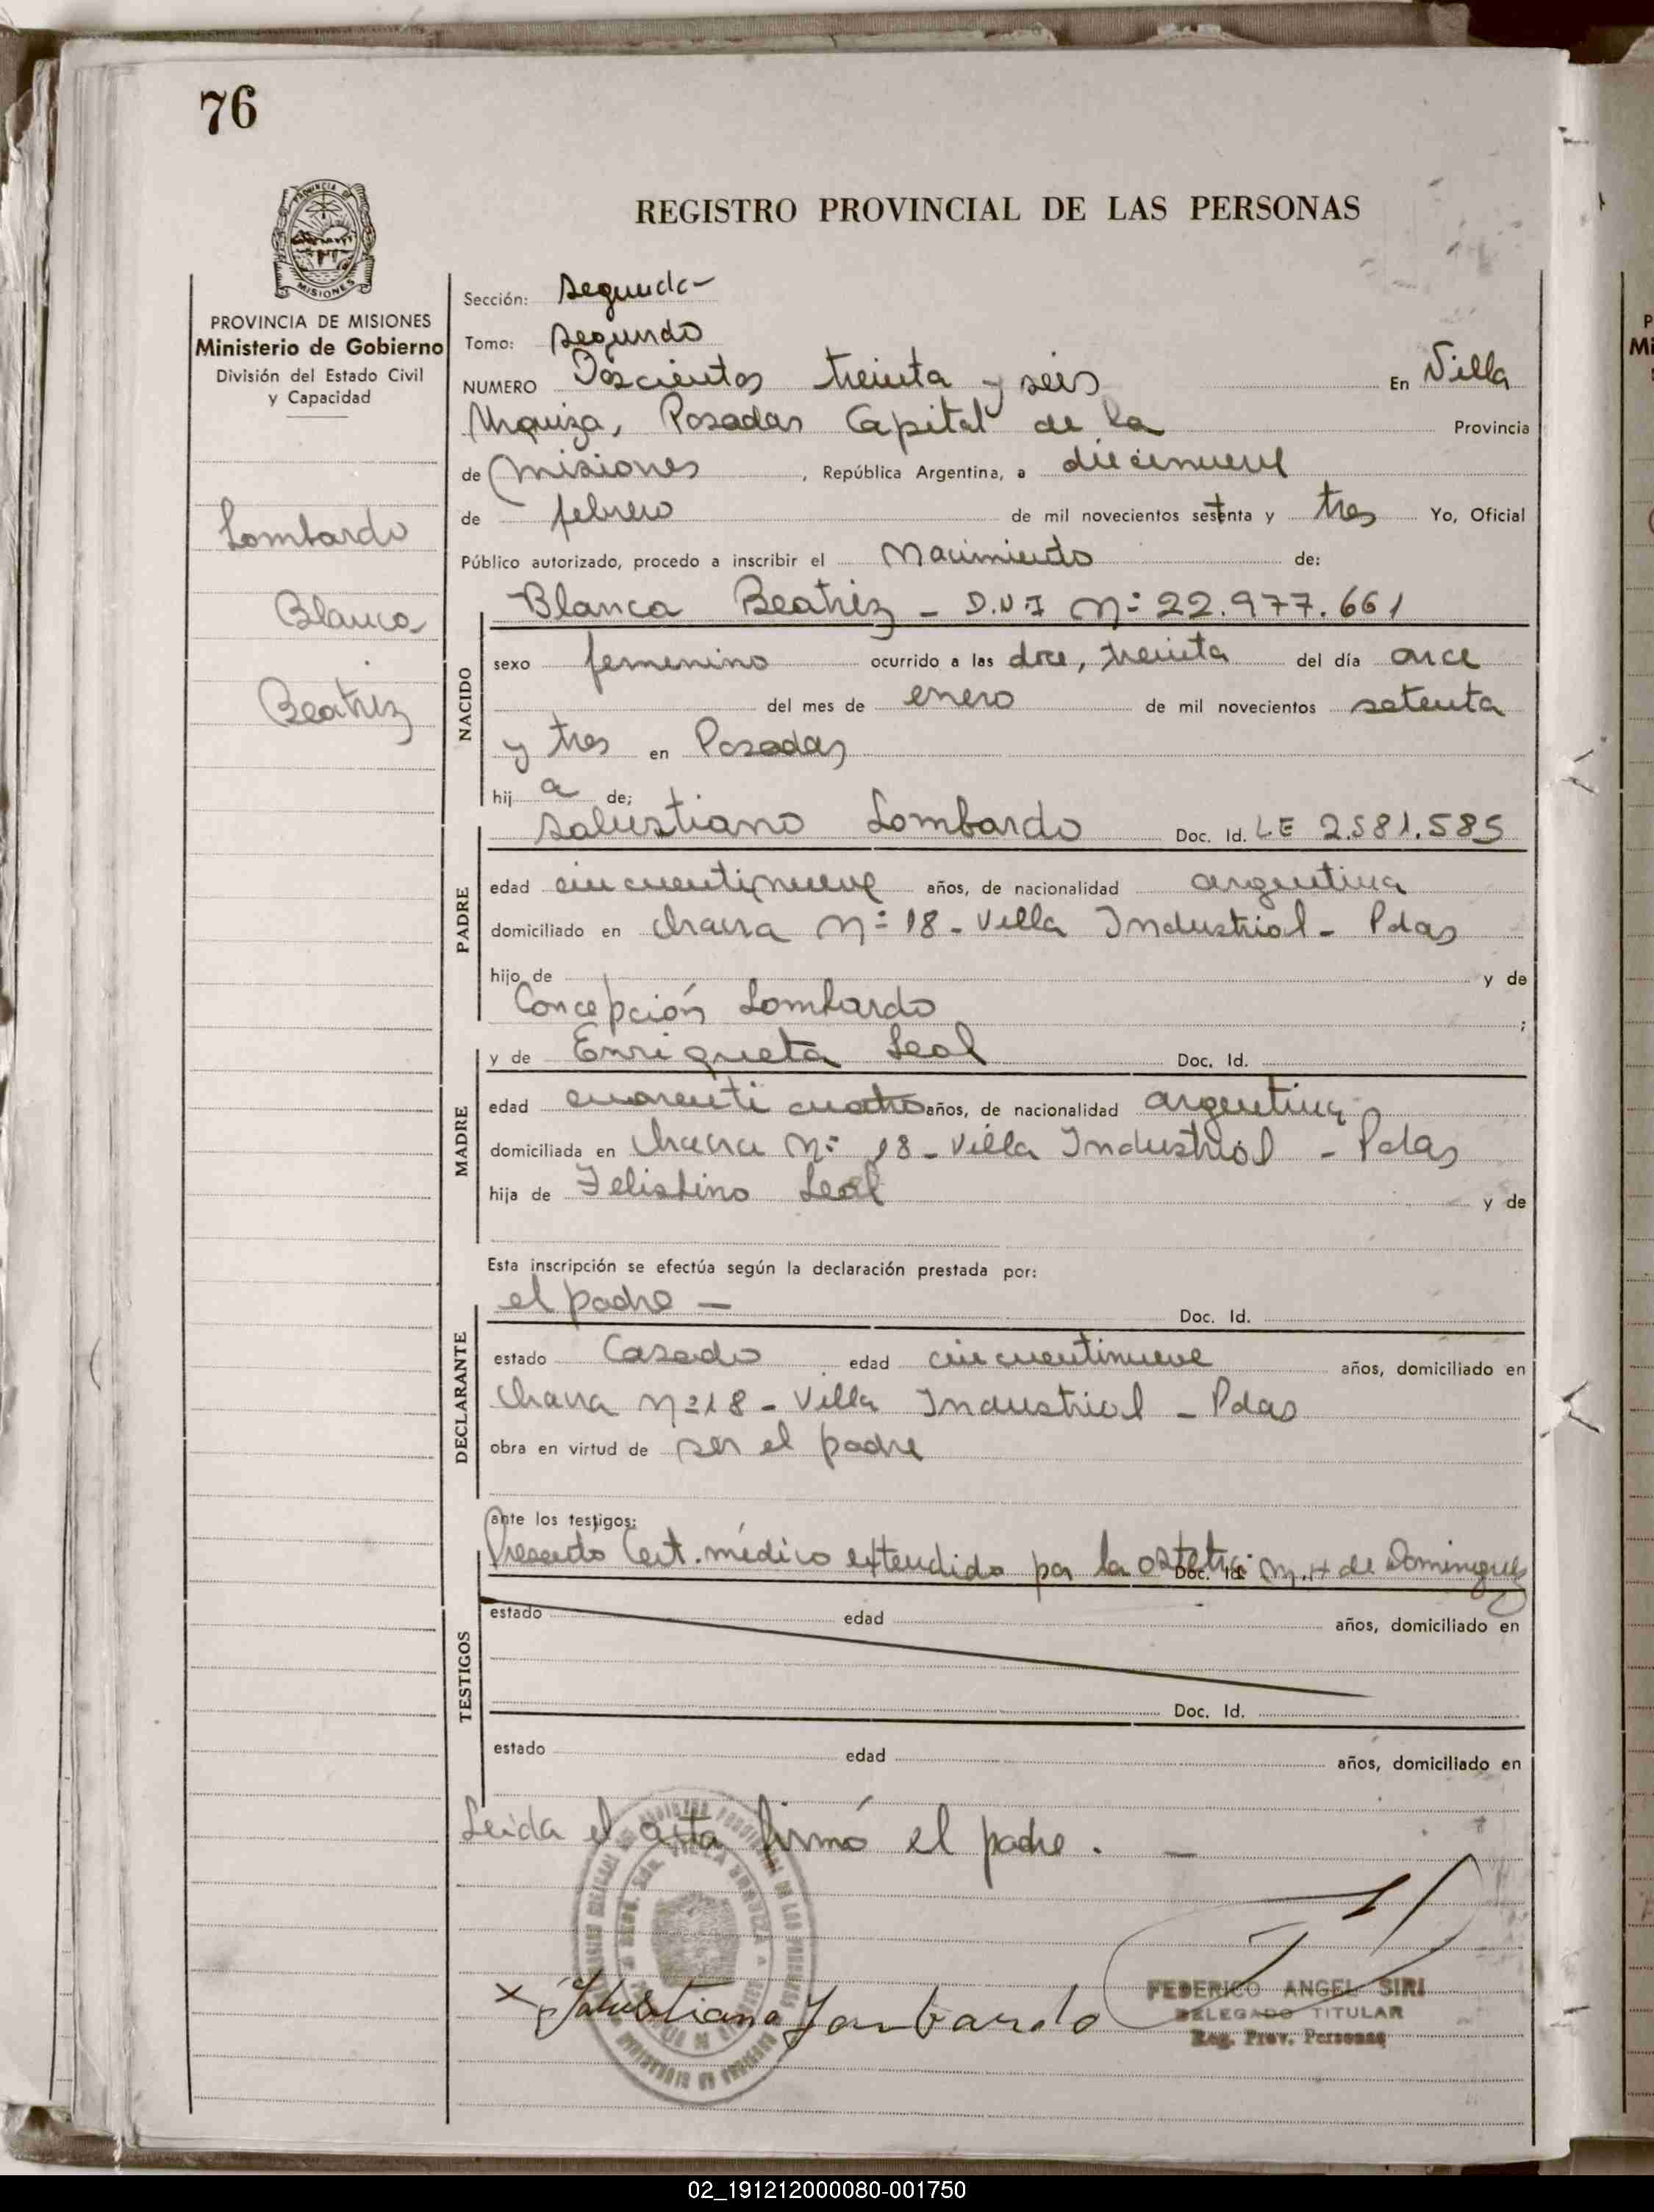 76
REGISTRO PROVINCIAL DE LAS PERSONAS
PROVINCIA DE MISIONES
MISIONES
PROVINCIA DE MISIONES
Ministerio de Gobierno
División del Estado Civil
y Capacidad
Lombardo
Blanca
Beatriz
Sección: Segunda
Tomo: Segundo
NUMERO Doscientos treinta y seis En Villa
Urquiza, Posadas Capital de la Provincia
de Misiones, República Argentina, a diecinueve
de febrero de mil novecientos setenta y tres Yo, Oficial
Público autorizado, procedo a inscribir el Nacimiento de:
Blanca Beatriz - D.N.I Nº 22.977.661
NACIDO
sexo femenino ocurrido a las doce, treinta del día once
del mes de enero de mil novecientos setenta
y tres en Posadas
hij a de;
Salustiano Lombardo Doc. Id. LE 2.581.585
PADRE
edad cincuentinueve años, de nacionalidad argentina
domiciliado en Chacra Nº 18 - Villa Industrial - Pdas
hijo de y de
Concepción Lombardo ;
y de Enriqueta Leal Doc. Id.
MADRE
edad cuarenti cuatro años, de nacionalidad argentina
domiciliada en Chacra Nº 18 - Villa Industrial - Pdas
hija de Leal y de
Esta inscripción se efectúa según la declaración prestada por:
el padre — Doc. Id.
DECLARANTE
estado Casado edad cincuentinueve años, domiciliado en
Chacra Nº 18 - Villa Industrial - Pdas
obra en virtud de ser el padre
ante los testigos:
Presento Cert. médico extendido por la Doc. Id. M. H de Dominguez
TESTIGOS
estado edad años, domiciliado en
Doc. Id.
estado edad años, domiciliado en
Leida el acta firmó el padre. —
x Salustiano Lombardo
FEDERICO ANGEL SIRI
DELEGADO TITULAR
Reg. Prov. Personas
02_191212000080-001750